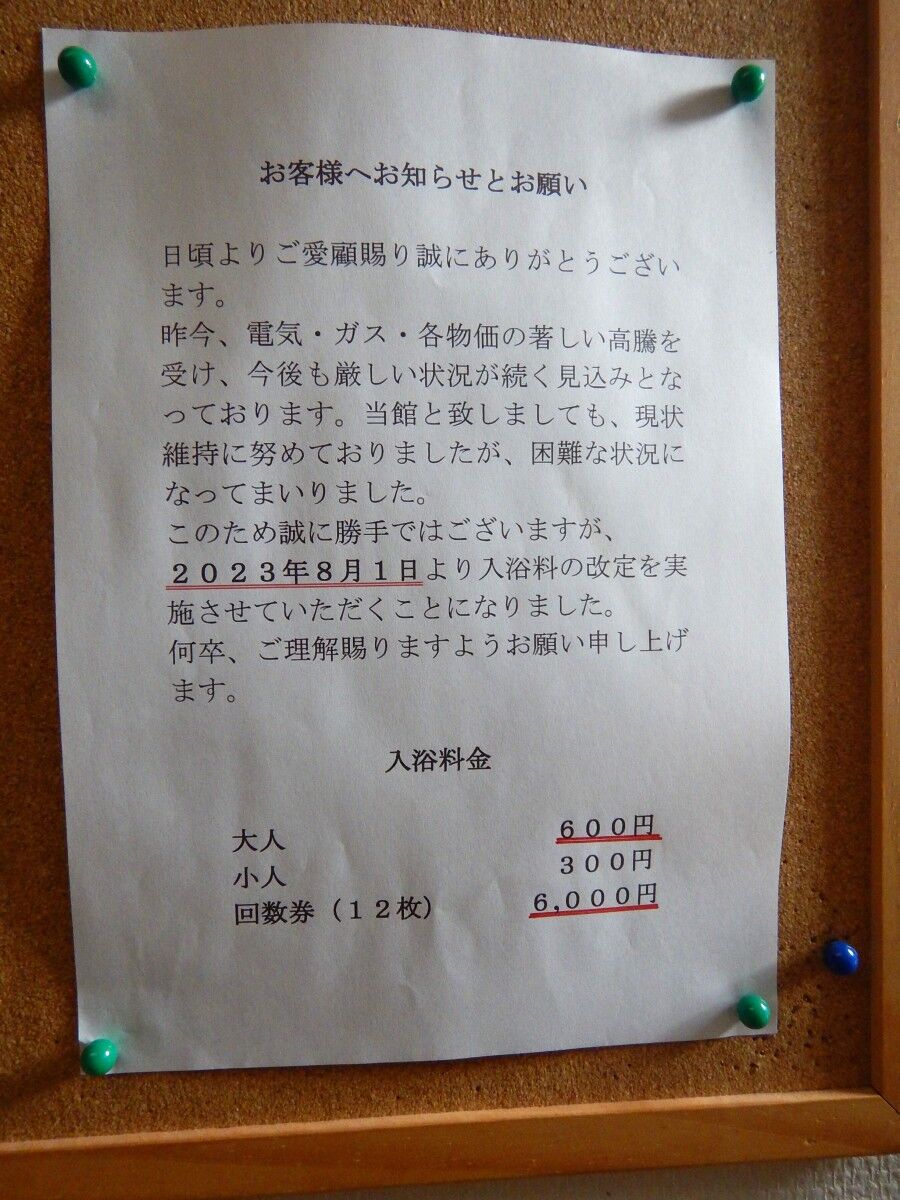 お客様へお知らせとお願い
日頃よりご愛顧賜り誠にありがとうござい
ます。
昨今、電気・ガス・各物価の著しい高騰を
受け、今後も厳しい状況が続く見込みとな
っております。当館と致しましても、現状
維持に努めておりましたが、困難な状況に
なってまいりました。
このため誠に勝手ではございますが、
２０２３年８月１日より入浴料の改定を実
施させていただくことになりました。
何卒、ご理解賜りますようお願い申し上げ
ます。
入浴料金
大人 ６００円
小人 ３００円
回数券（１２枚） ６,０００円